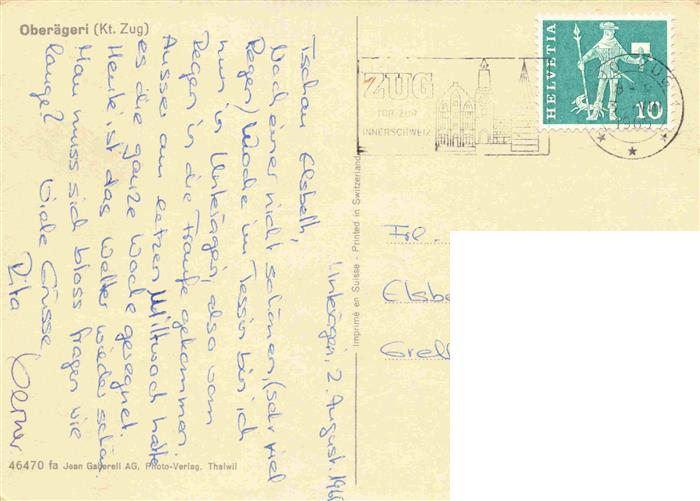 Oberägeri (Kt. Zug)
Unterägeri, 2. August.
Tschau Elsbeth,
Nach einer nicht schönen, (sehr viel
Regen) Woche im Tessin bin ich
nun in Unterägeri, also vom
Regen in die Traufe gekommen.
Ausser am letzen Mittwoch hatte
es die ganze Woche geregnet.
Heute ist das Wetter wieder schön.
Man muss sich bloss fragen wie
lange?
Viele Grüsse
Rita Werner
46470 fa Jean Gaberell AG, Photo-Verlag, Thalwil
Imprimé en Suisse - Printed in Switzerland
ZUG
TOR ZUR
INNERSCHWEIZ
HELVETIA
10
ZUG
Frl.
Elsbe
Grell